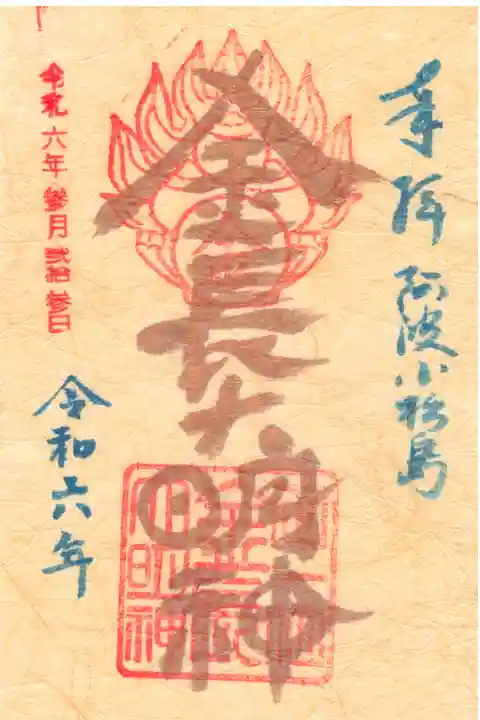 奉拝 阿波小松島
金長大明神
令和六年参月弐拾参日
令和六年